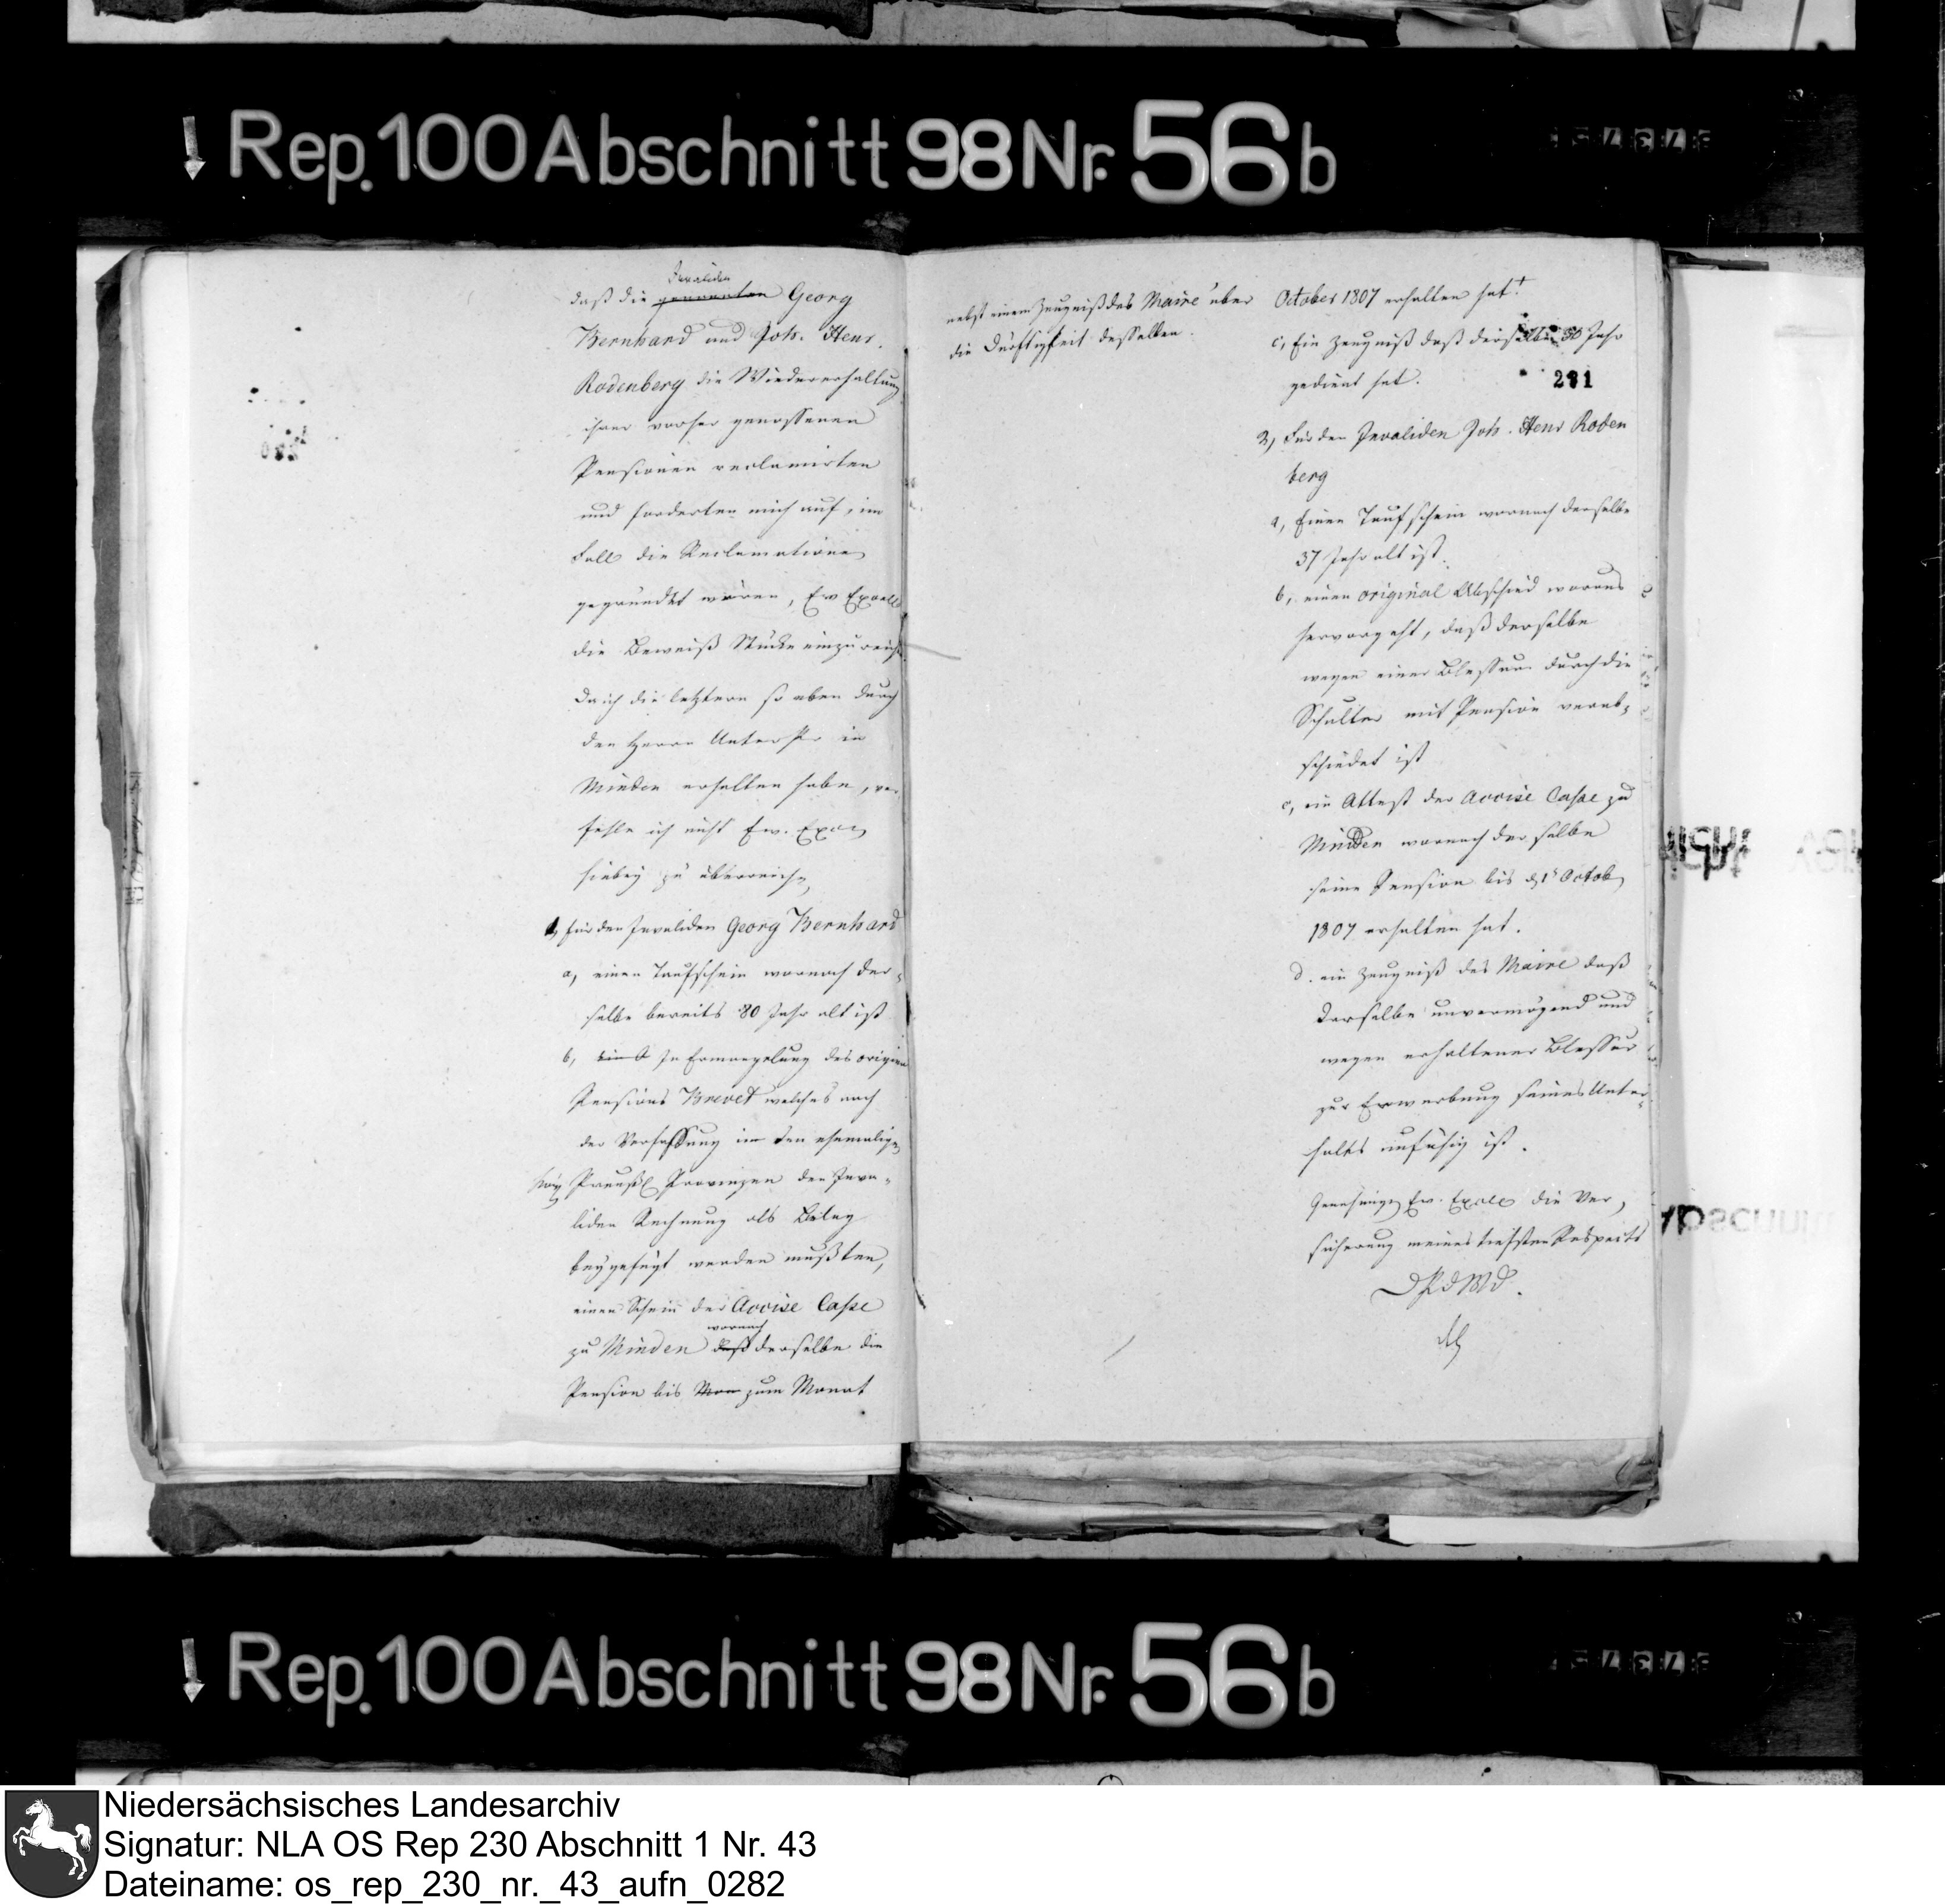 Rep. 100 Abschnitt 98 Nr. 56 b
Invaliden
daß die genannten Georg
Bernhard und Joh. Henr.
Rodenberg die Wiedererhaltung
ihrer vorher genossenen
Pensionen reclamirten
und forderten mich auf, im
Fall die Reclamationen
gegründet wären, Ew Excell
die Beweiß Stücke einzureichen
Da ich die letztern so eben durch
den Herrn Unter Pr in
Minden erhalten habe, ver
fehle ich nicht Ew. Exce
hiebey zu überreichen
1, für den Invaliden Georg Bernhard
a, einen Taufschein wornach der-
selbe bereits 80 Jahr alt ist
b, ein A In Ermangelung des origin
Pensions Brevet welches nach
der Verfassung im den ehemaligen
König Preuß Provinzen den Inva-
liden Rechnung als Beleg
beygefügt werden mußten,
einen Schein der Accise Casse
wornach
zu Minden daß derselbe die
Pension bis Mon zum Monat
nebst einem Zeugniß des Maire über
die Dürftigkeit desselben.
October 1807 erhalten hat.
c, Ein Zeugniß daß derselbe 30 Jahr
gedient hat.
281
2, Für den Invaliden Joh. Henr Roden
berg
a, Einen Taufschein wornach derselbe
37 Jahr alt ist.
b, einen original Abschied woraus
hervorgeht, daß derselbe
wegen einer Blessur durch die
Schulter mit Pension verab-
schiedet ist
c, ein Attest der Accise Casse zu
Minden wornach derselbe
seine Pension bis 1 Octob
1807 erhalten hat.
d. ein Zeugniß des Maire daß
derselbe unvermögend und
wegen erhaltener Blessur
zur Erwerbung seines Unter-
halts unfähig ist.
Genehmigen Ew. Excell die Ver,
sicherung meines tiefsten Respects
DPdWD.
Rep. 100 Abschnitt 98 Nr. 56 b
Niedersächsisches Landesarchiv
Signatur: NLA OS Rep 230 Abschnitt 1 Nr. 43
Dateiname: os_rep_230_nr._43_aufn_0282